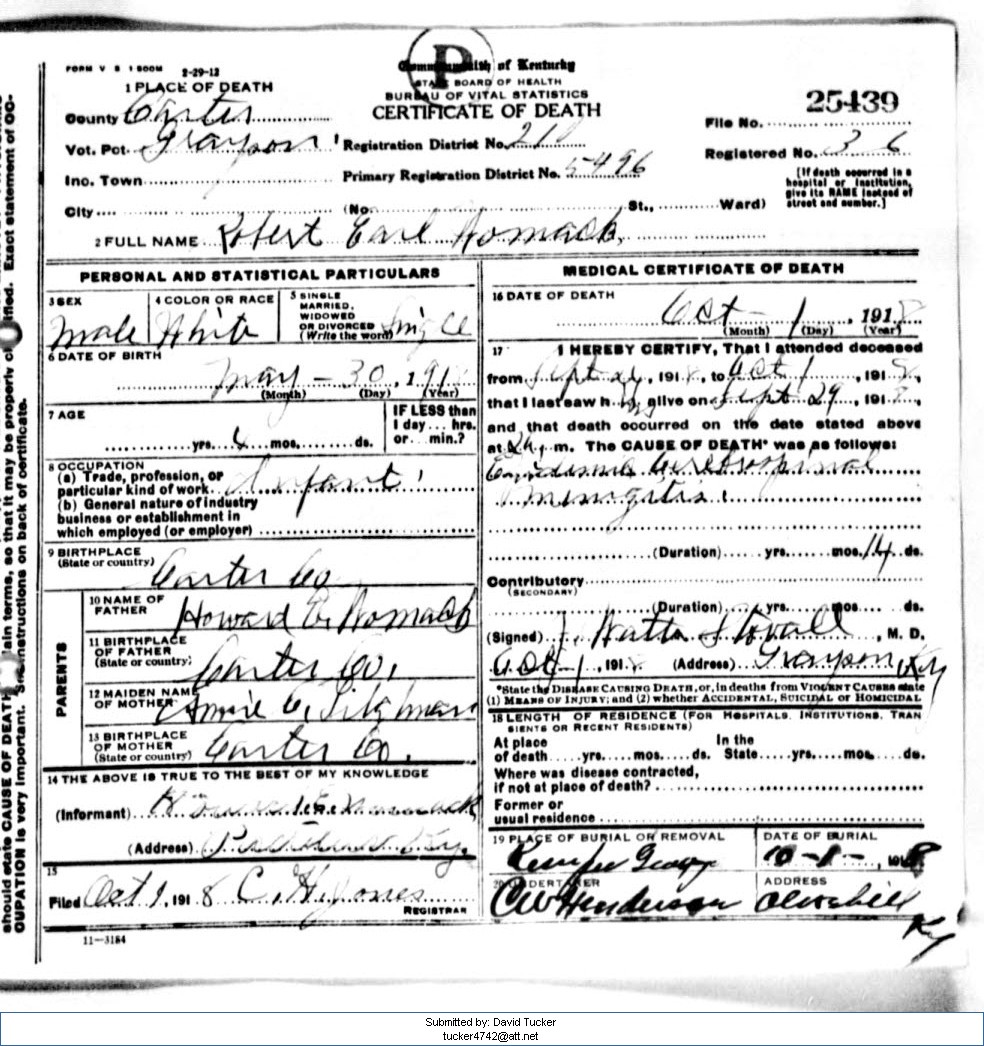 FORM V S 1 500M 2-29-12
1 PLACE OF DEATH
County Carter
Vot. Pct. Grayson
Inc. Town
City
P
Commonwealth of Kentucky
STATE BOARD OF HEALTH
BUREAU OF VITAL STATISTICS
CERTIFICATE OF DEATH
Registration District No. 210
Primary Registration District No. 5496
(No. St., Ward)
25439
File No.
Registered No. 36
[If death occurred in a
hospital or institution,
give its NAME instead of
street and number.]
2 FULL NAME Robert Earl Womack
PERSONAL AND STATISTICAL PARTICULARS
3 SEX
Male
4 COLOR OR RACE
White
5 SINGLE
MARRIED,
WIDOWED
OR DIVORCED
(Write the word) Single
6 DATE OF BIRTH
May - 30, 1918
(Month) (Day) (Year)
7 AGE
yrs. 4 mos. ds.
IF LESS than
1 day ... hrs.
or ... min.?
8 OCCUPATION
(a) Trade, profession, or
particular kind of work Infant
(b) General nature of industry
business or establishment in
which employed (or employer)
9 BIRTHPLACE
(State or country)
Carter Co
PARENTS
10 NAME OF
FATHER
Howard E. Womack
11 BIRTHPLACE
OF FATHER
(State or country)
Carter Co.
12 MAIDEN NAME
OF MOTHER
Annie
13 BIRTHPLACE
OF MOTHER
(State or country)
Carter Co.
14 THE ABOVE IS TRUE TO THE BEST OF MY KNOWLEDGE
(Informant) Howard E. Womack
(Address) Ky.
15
Filed Oct 1, 1918 C. H. Jones
REGISTRAR
11-3184
MEDICAL CERTIFICATE OF DEATH
16 DATE OF DEATH
Oct 1, 1918
(Month) (Day) (Year)
17 I HEREBY CERTIFY, That I attended deceased
from Sept, 1918, to Oct 1, 1918,
that I last saw h alive on Sept 29, 1918,
and that death occurred on the date stated above
at m. The CAUSE OF DEATH* was as follows:
Epidemic Cerebrospinal
Menigitis.
(Duration) yrs. mos. 14 ds.
Contributory
(SECONDARY)
(Duration) yrs. mos. ds.
(Signed) J Watts Stovall, M. D.
Oct 1, 1918 (Address) Grayson, Ky
*State the DISEASE CAUSING DEATH, or, in deaths from VIOLENT CAUSES state
(1) MEANS OF INJURY; and (2) whether ACCIDENTAL, SUICIDAL OR HOMICIDAL
18 LENGTH OF RESIDENCE (FOR HOSPITALS, INSTITUTIONS, TRAN
SIENTS OR RECENT RESIDENTS)
At place
of death yrs. mos. ds.
In the
State yrs. mos. ds.
Where was disease contracted,
if not at place of death?
Former or
usual residence
19 PLACE OF BURIAL OR REMOVAL
DATE OF BURIAL
10-1-, 1918
20 UNDERTAKER
CW Henderson
ADDRESS
Olivehill
Ky
should state CAUSE OF DEATH
plain terms, so that it may be properly
Exact statement of OC-
CUPATION is very important. See instructions on back of certificate.
Submitted by: David Tucker
tucker4742@att.net